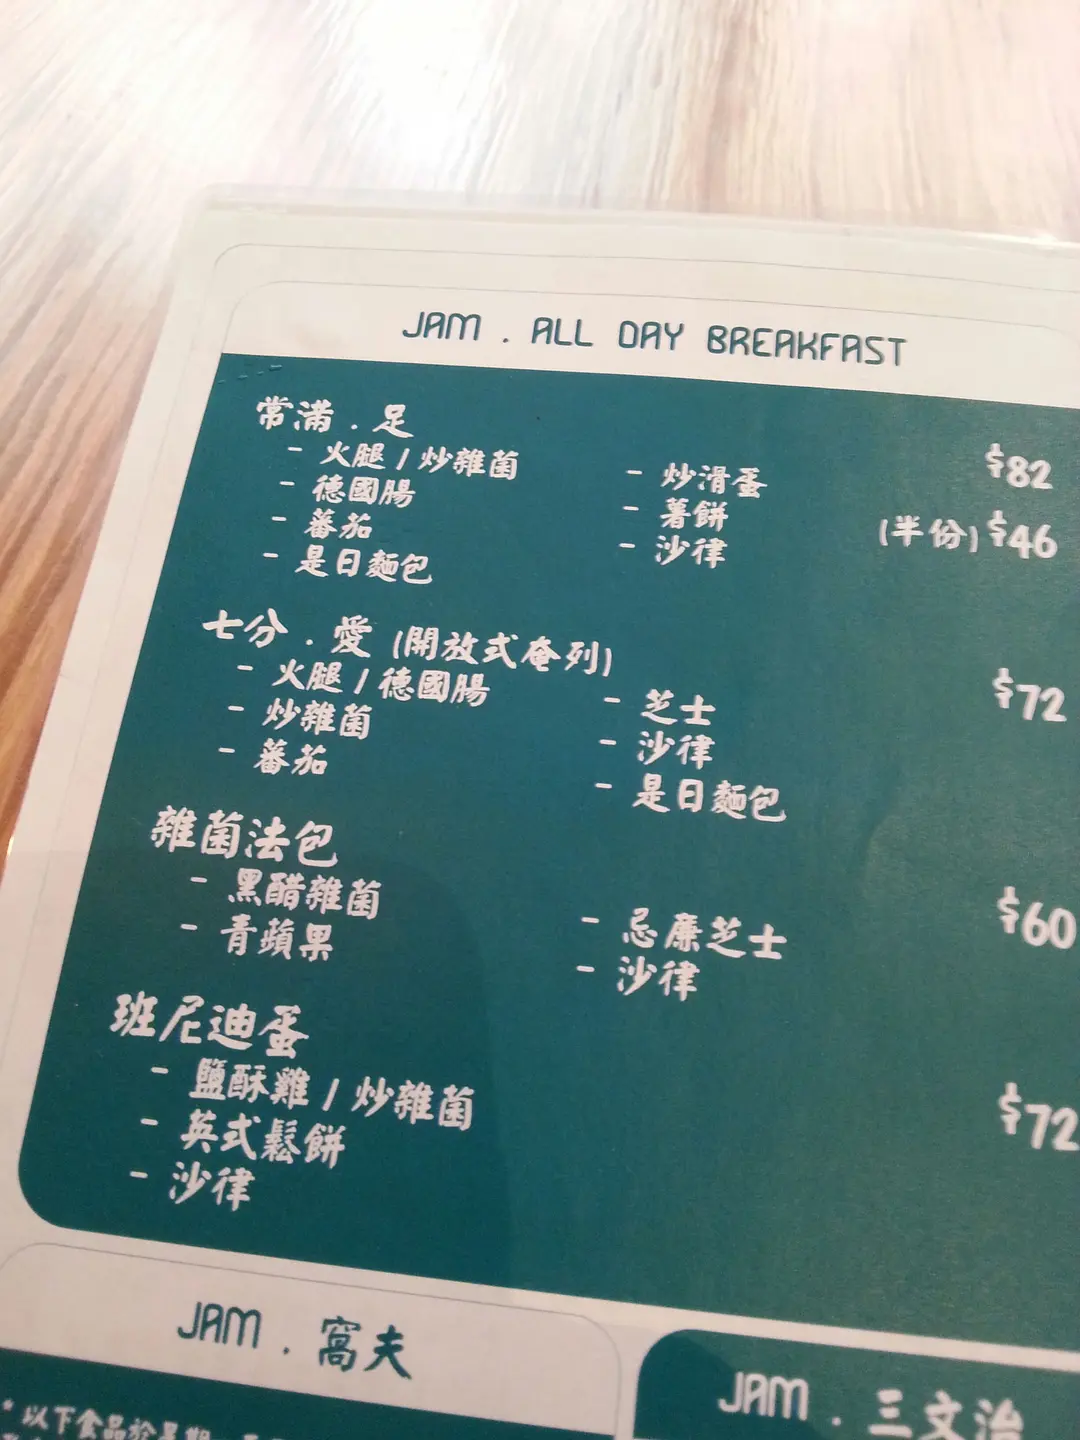 JAM . ALL DAY BREAKFAST
常滿 . 足
- 火腿 / 炒雜菌
- 德國腸
- 蕃茄
- 是日麵包
- 炒滑蛋
- 薯餅
- 沙律
$82
(半份) $46
七分 . 愛 (開放式奄列)
- 火腿 / 德國腸
- 炒雜菌
- 蕃茄
- 芝士
- 沙律
- 是日麵包
$72
雜菌法包
- 黑醋雜菌
- 青蘋果
- 忌廉芝士
- 沙律
$60
班尼迪蛋
- 鹽酥雞 / 炒雜菌
- 英式鬆餅
- 沙律
$72
JAM . 窩夫
* 以下食品於星期
JAM . 三文治